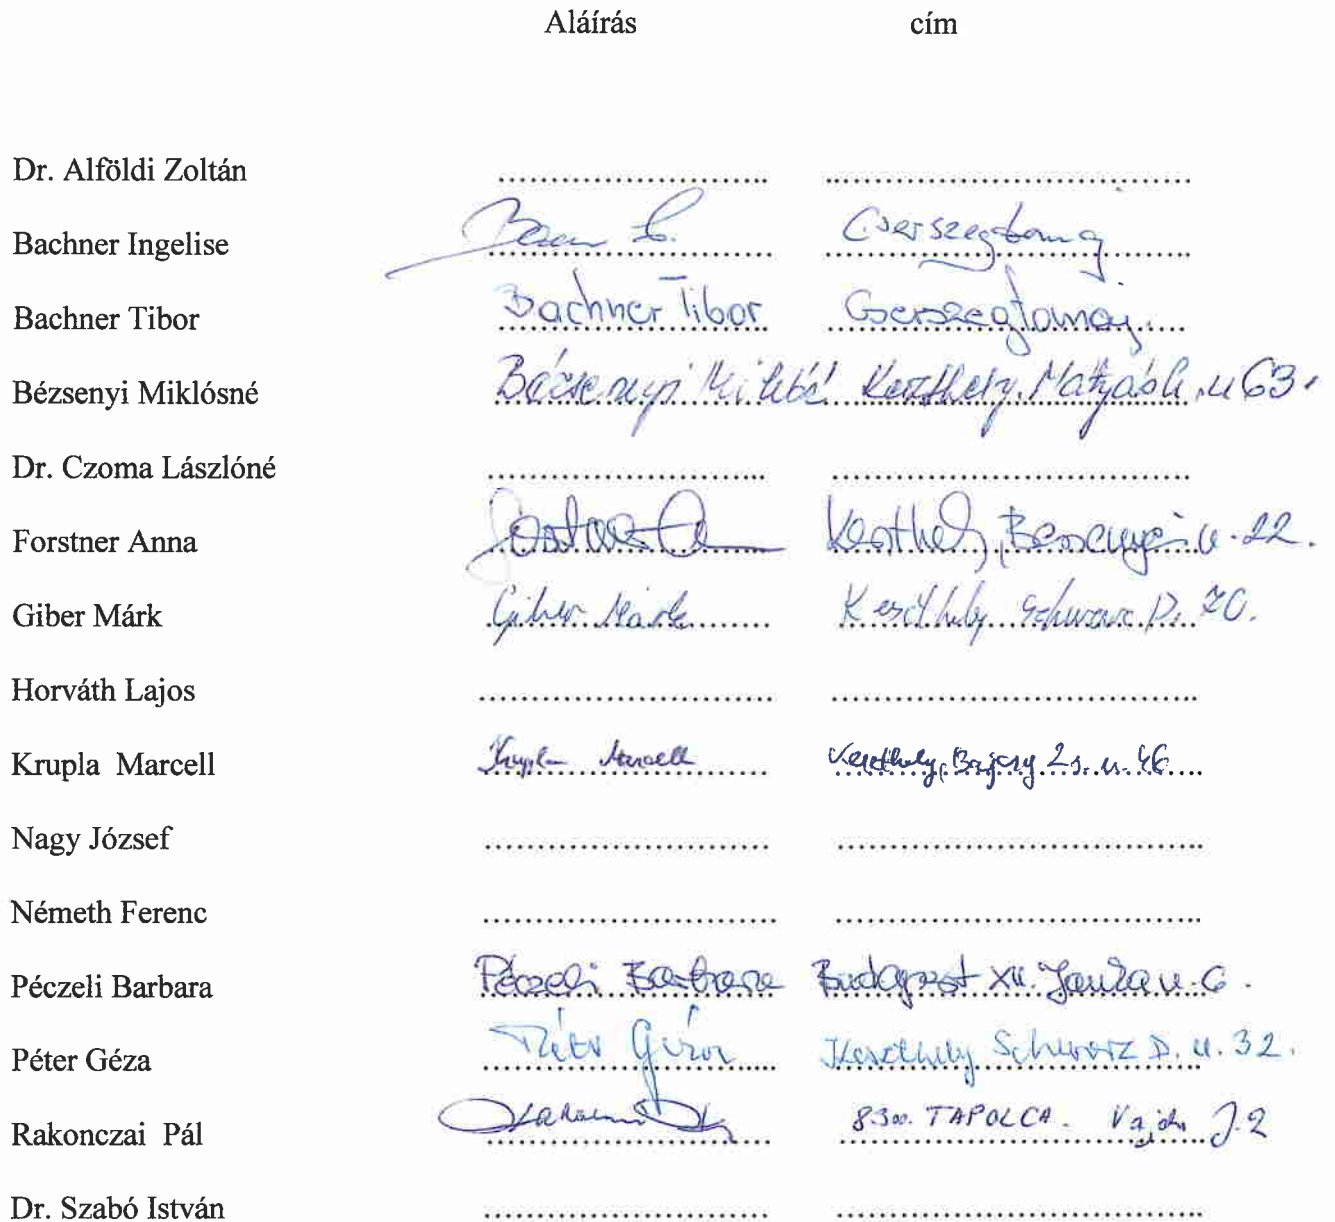 Aláírás cím
Dr. Alföldi Zoltán ........................... ....................................
Bachner Ingelise Cserszegtomaj
Bachner Tibor Bachner Tibor Cserszegtomaj.
Bézsenyi Miklósné Keszthely. Mátyás k. u 63.
Dr. Czoma Lászlóné ........................... ....................................
Forstner Anna Keszthely, Bessenyei u. 22.
Giber Márk Giber Márk Keszthely Schwarz D. 70.
Horváth Lajos ........................... ....................................
Krupla Marcell Krupla Marcell Keszthely, Bajcsy Zs. u. 46
Nagy József ........................... ....................................
Németh Ferenc ........................... ....................................
Péczeli Barbara Péczeli Barbara Budapest XII. u. 6.
Péter Géza Péter Géza Keszthely Schwarz D. u. 32.
Rakonczai Pál 8300. TAPOLCA. Vajda J. 2
Dr. Szabó István ........................... ....................................